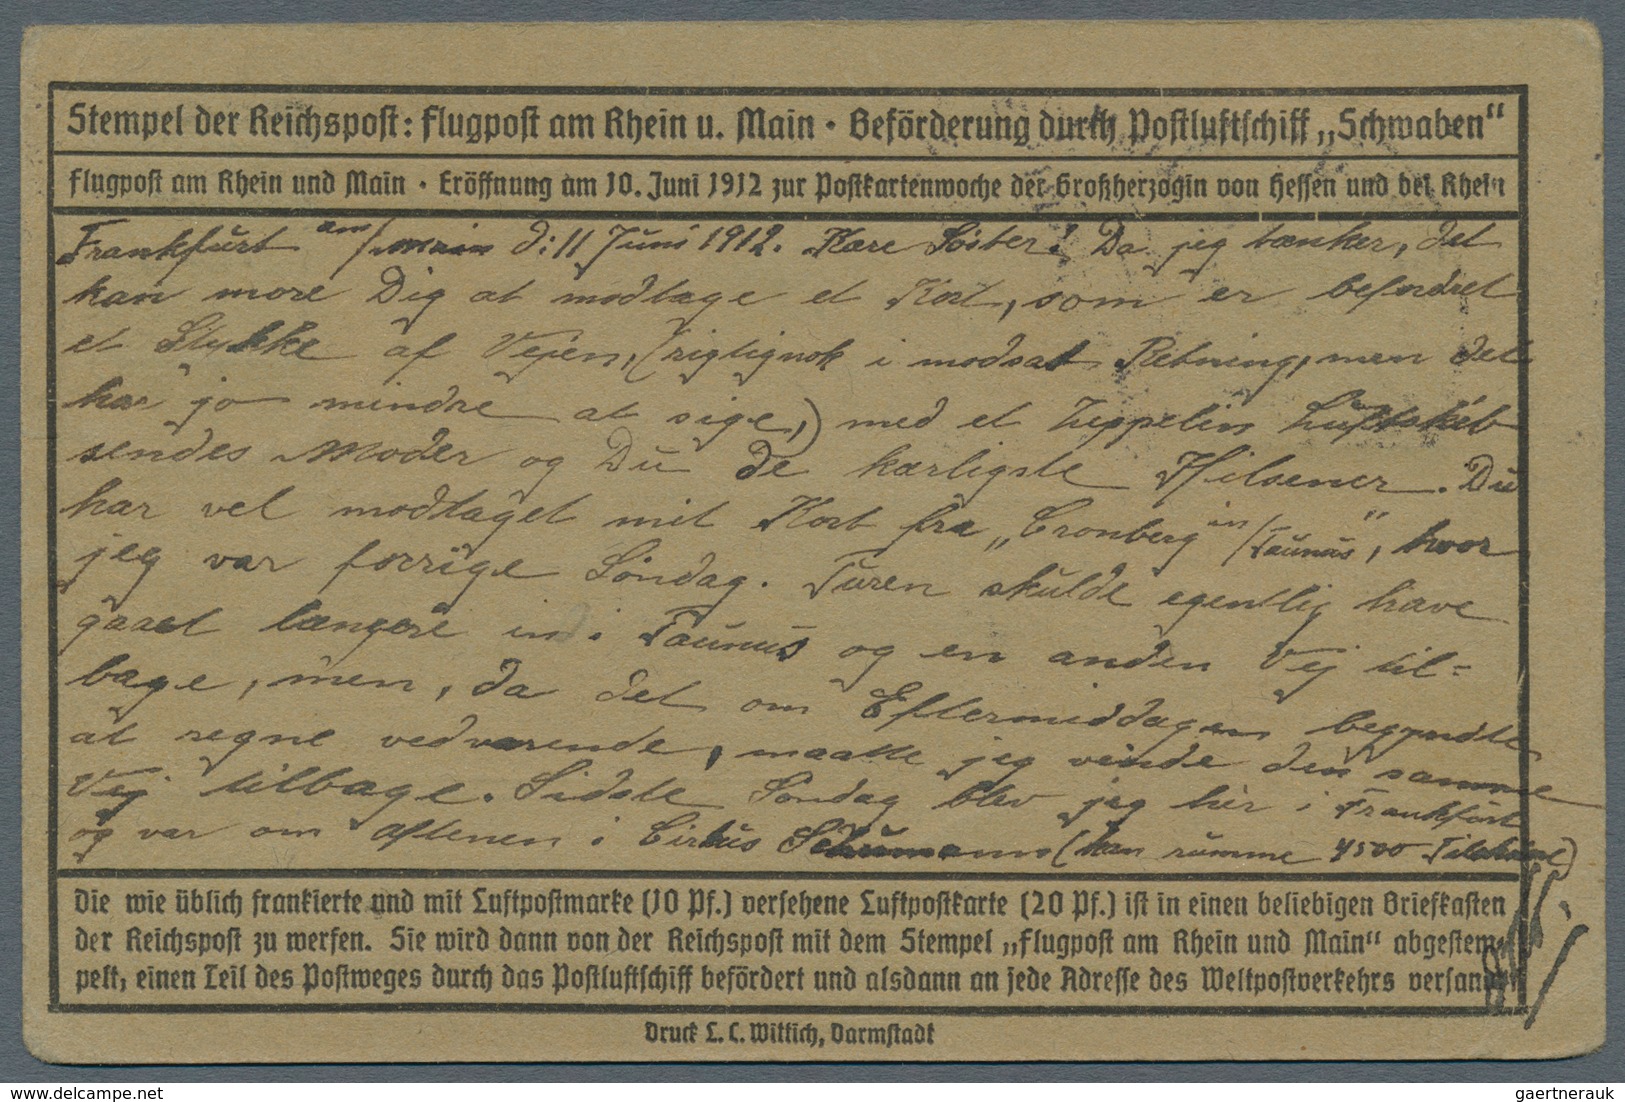 Stempel der Reichspost: Flugpost am Rhein u. Main · Beförderung durch Postluftschiff „Schwaben“
Flugpost am Rhein und Main · Eröffnung am 10. Juni 1912 zur Postkartenwoche der Großherzogin von Hessen und bei Rhein
Frankfurt am/Main d: 11 Juni 1912. Kære Søster! Da jeg tænker, det
kan more Dig at modtage et Kort, som er befordret
et Stykke af Vejen, (rigtignok i modsat Retning, men det
har jo mindre at sige,) med et Zeppelin Luftskib
sendes Moder og Du de kærligste Hilsener. Du
har vel modtaget mit Kort fra „Cronberg in/Taunus“, hvor
jeg var forrige Søndag. Turen skulde egentlig have
gaaet længere in i Taunus og en anden Vej til=
bage, men, da det om Eftermiddagen begyndte
at regne vedvarende, maatte jeg vende den samme
Vej tilbage. Sidste Søndag blev jeg her i Frankfurt
og var om aftenen i Cirkus Schumann (kan rumme 4500 Tilskuere)
Die wie üblich frankierte und mit Luftpostmarke (10 Pf.) versehene Luftpostkarte (20 Pf.) ist in einen beliebigen Briefkasten
der Reichspost zu werfen. Sie wird dann von der Reichspost mit dem Stempel „Flugpost am Rhein und Main“ abgestem-
pelt, einen Teil des Postweges durch das Postluftschiff befördert und alsdann an jede Adresse des Weltpostverkehrs versandt
Druck L. C. Wittich, Darmstadt
www.delcampe.net
gaertnerauk